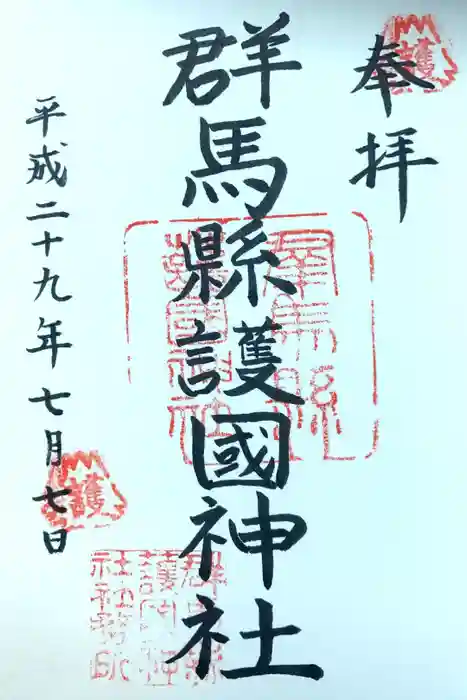 奉拝
護
群馬縣護國神社
群馬縣護國神社
平成二十九年七月七日
護
群馬縣護國神社社務所